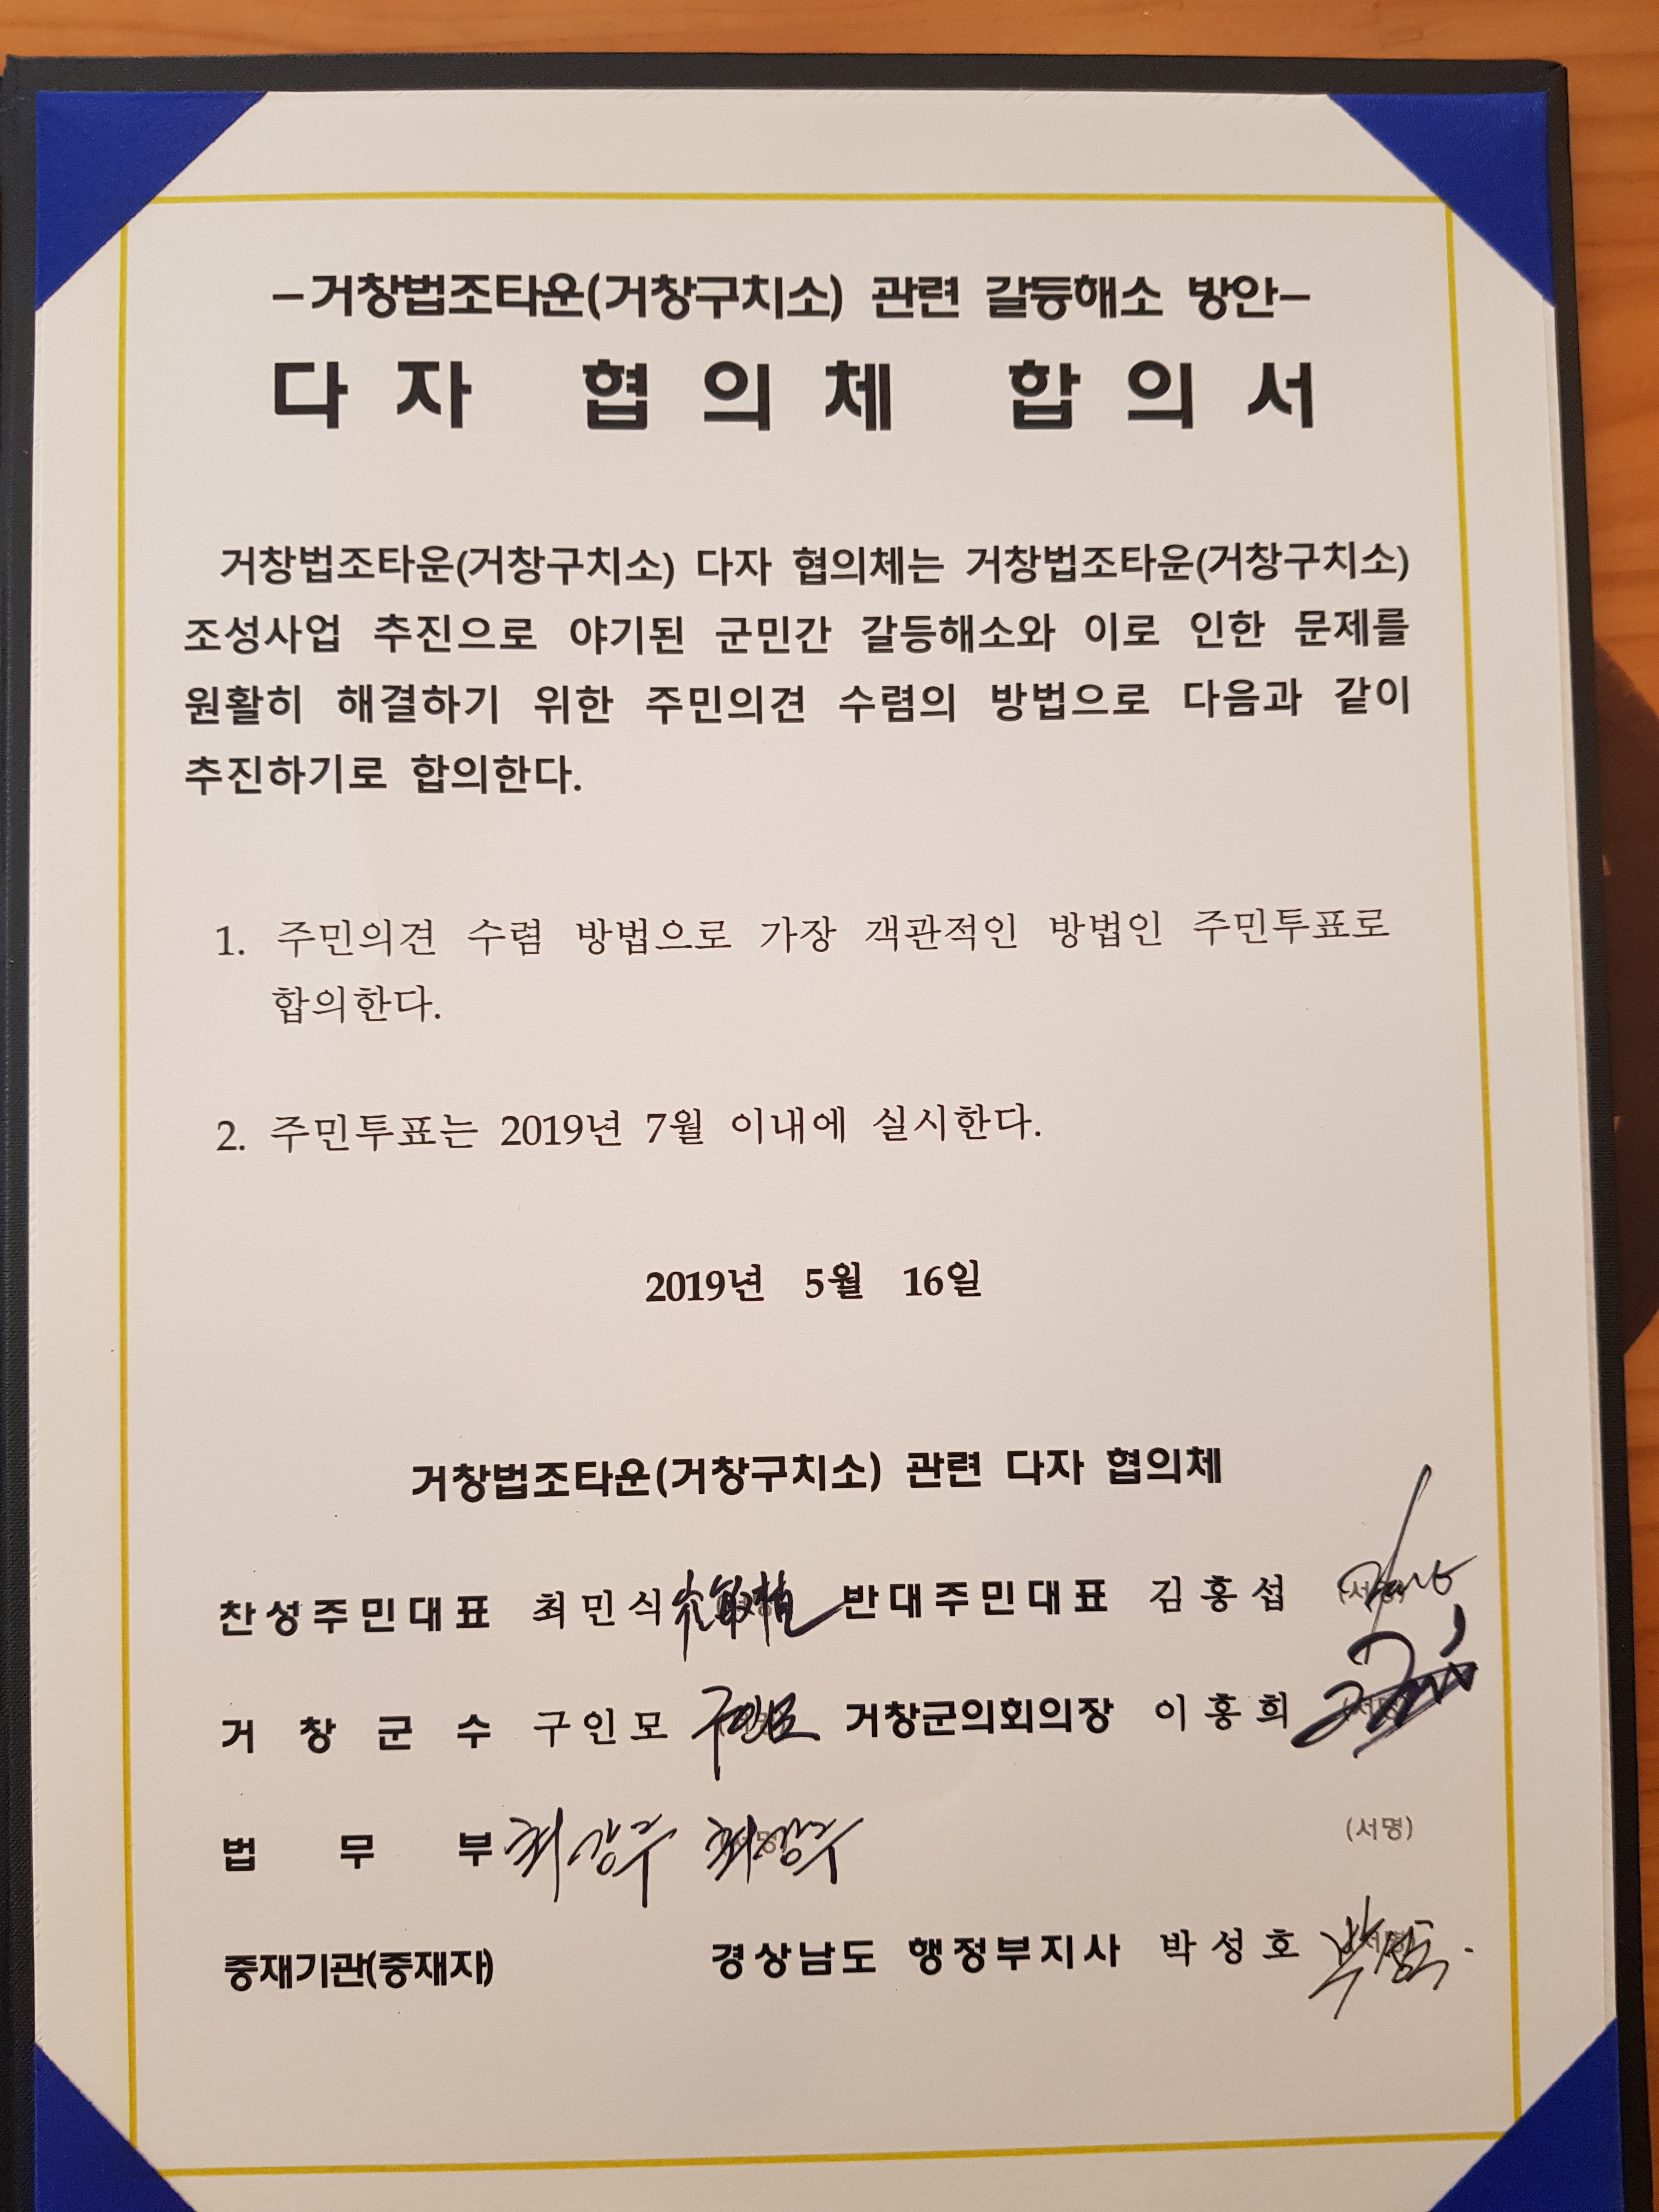 －거창법조타운(거창구치소) 관련 갈등해소 방안－
다자 협의체 합의서
거창법조타운(거창구치소) 다자 협의체는 거창법조타운(거창구치소)
조성사업 추진으로 야기된 군민간 갈등해소와 이로 인한 문제를
원활히 해결하기 위한 주민의견 수렴의 방법으로 다음과 같이
추진하기로 합의한다.
1. 주민의견 수렴 방법으로 가장 객관적인 방법인 주민투표로
합의한다.
2. 주민투표는 2019년 7월 이내에 실시한다.
2019년 5월 16일
거창법조타운(거창구치소) 관련 다자 협의체
찬성주민대표 최민식 (서명) 반대주민대표 김홍섭 (서명)
거창군수 구인모 구인모 (서명) 거창군의회의장 이홍희 (서명)
법무부 최강주 최강주 (서명) (서명)
중재기관(중재자) 경상남도 행정부지사 박성호 (서명)